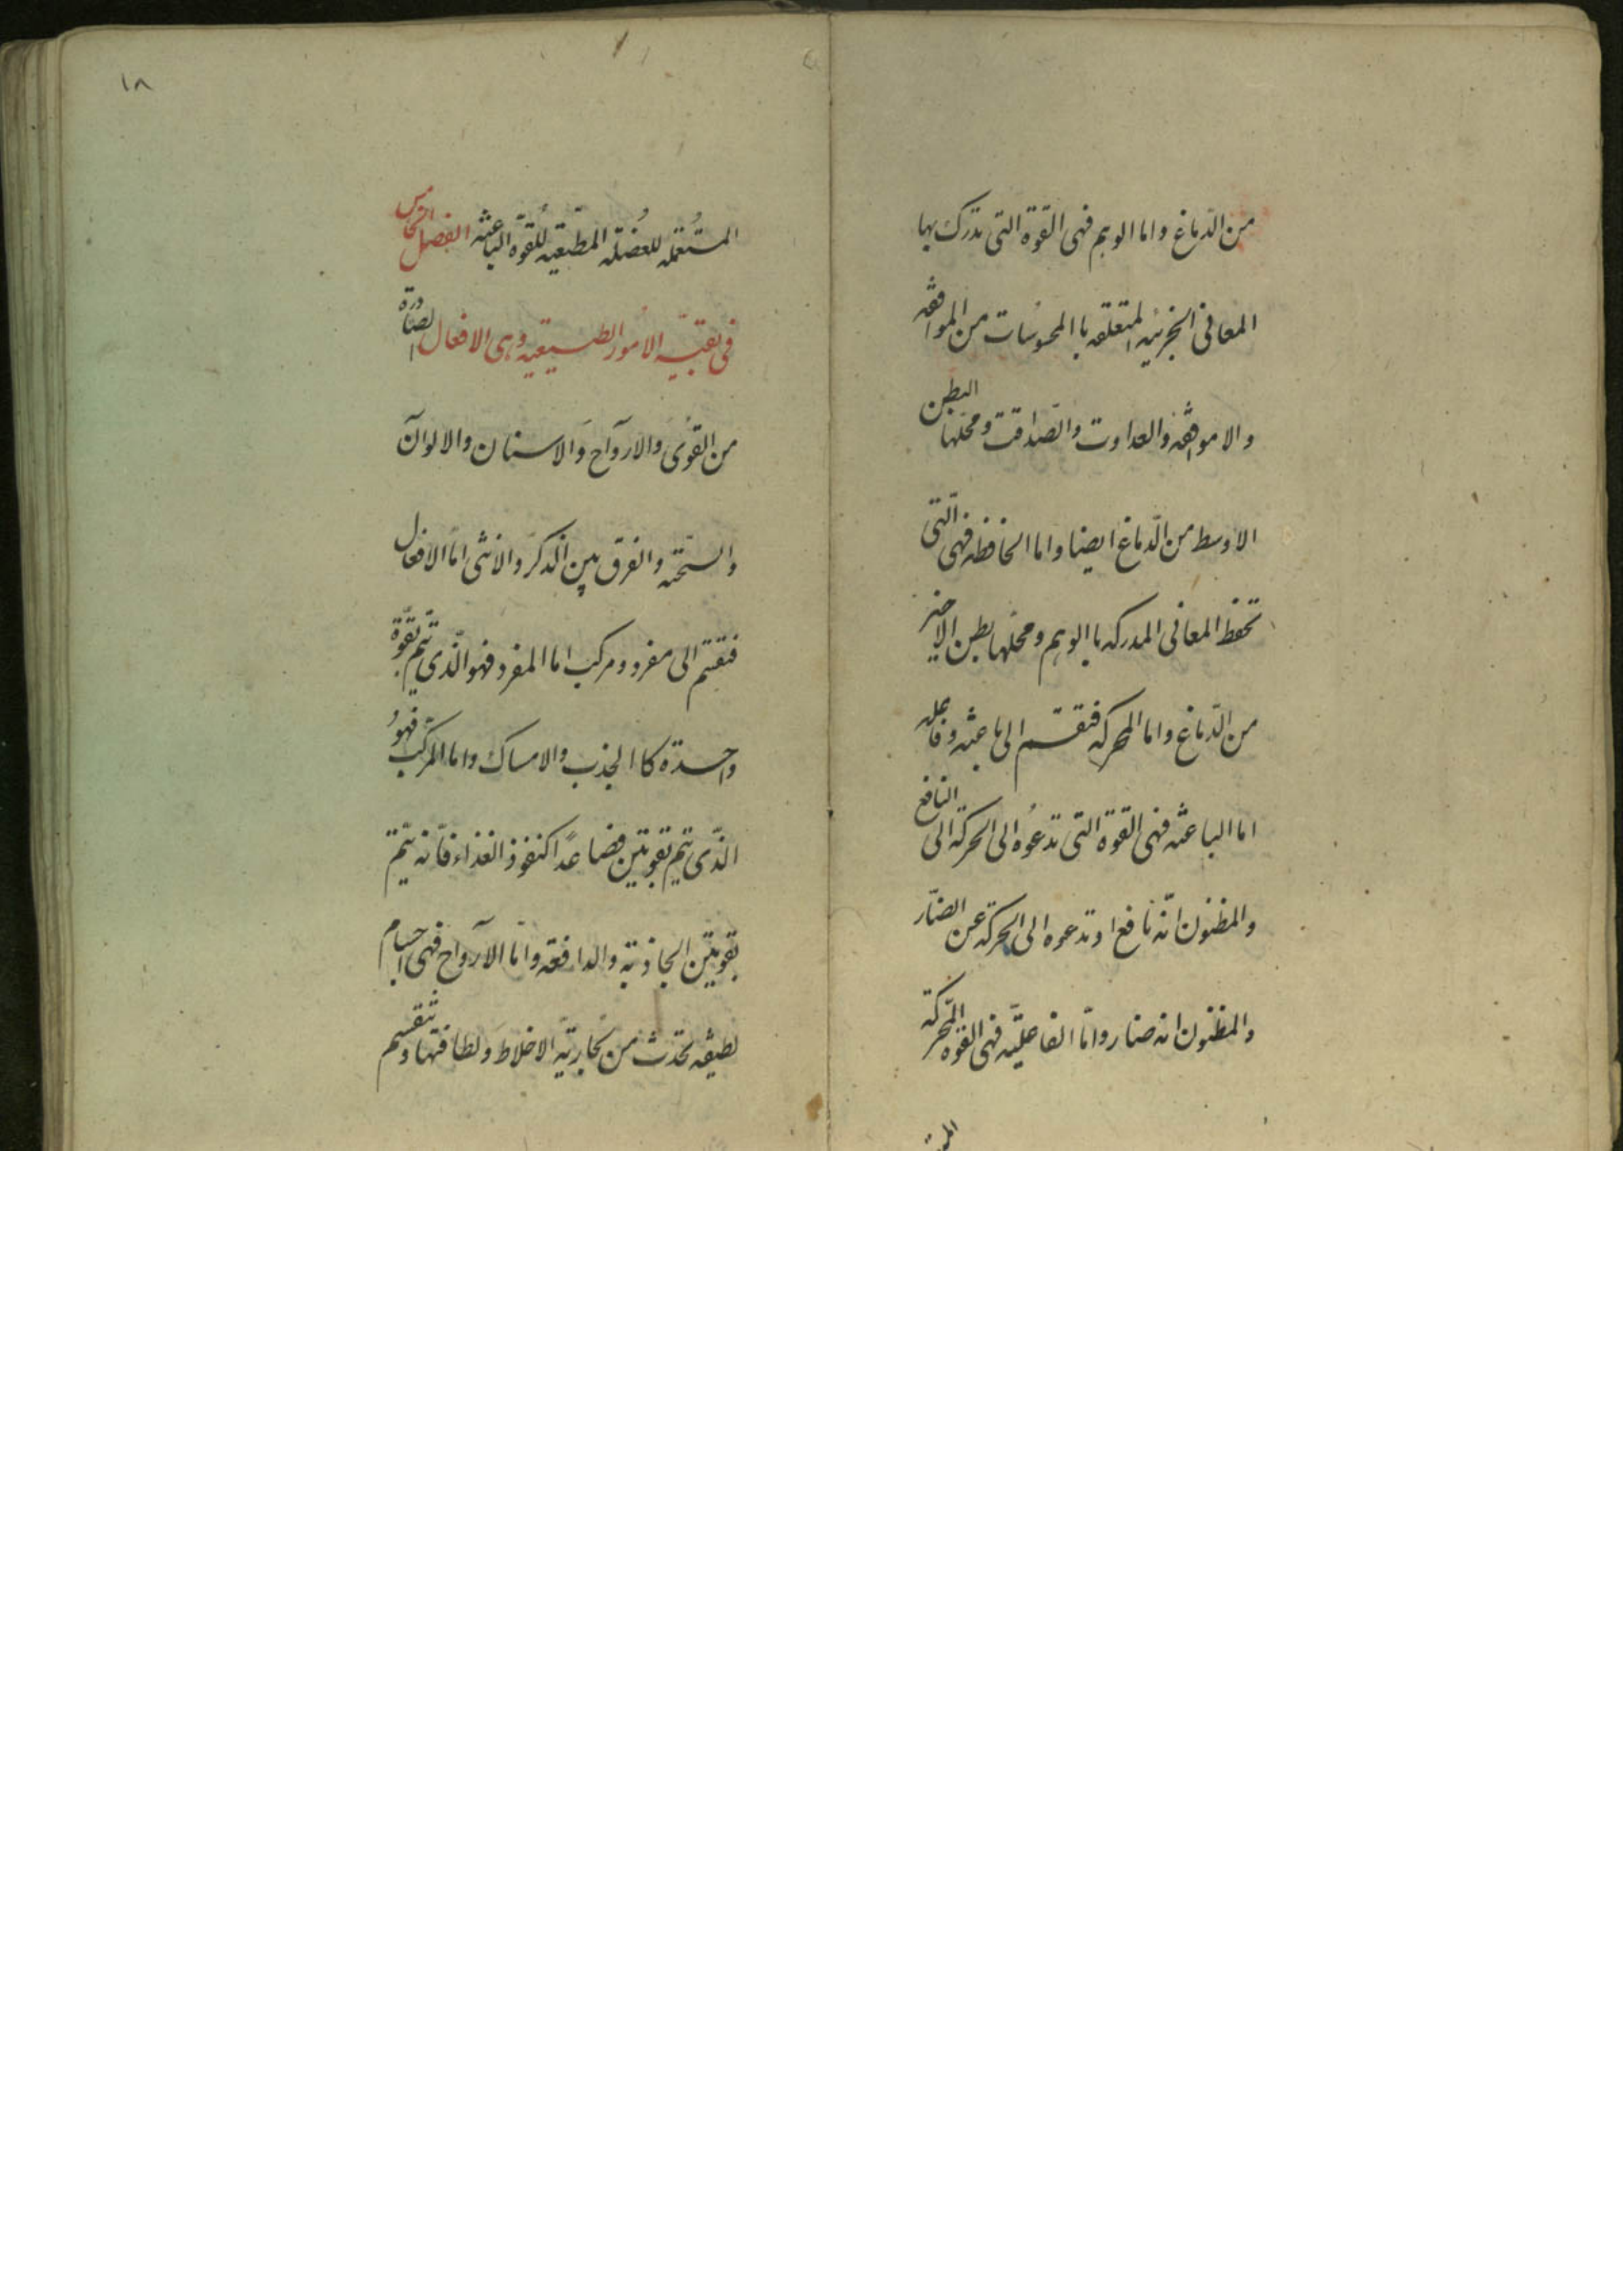 من الدّماغ واما الوهم فهى القوة التى تدرك بها
المعانى الجزئيه المتعلقه باالمحسوسات من الموافقه
والاموافقه والعداوت والصّداقت ومحلّها البطن
الاوسط من الدّماغ ايضا واما الحافظه فهى الّتى
تحفظ المعانى المدركه باالوهم ومحلّها بطن الاخير
من الدّماغ واما المحركه فتنقسم الى باعثه وفاعله
اما الباعثه فهى القوة التى تدعوه الى الحركة الى النافع
والمظنون انّه نافع او تدعوه الى الحركة عن الضّار
والمظنون انه ضار وامّا الفاعليّه فهى القوه المحّركة
١٨
المستُعمله للعضُله المطّيعيه للُقوّة الباعثه الفصل الخامس
فى بقيّه الامُور الطبيعيه وهى الافعال الصّادرة
من القوىَ والارواَح واَلاسنان والالوانَ
والسّحنه والفرق بين الذكر والانثى امّا الافعال
فتقسّم الى مفرد ومركب اما المفرد فهو الّذى تيّم بقوّة
واحدة كاالجذب والامساك واما المركّب فهوُ
الذّى يتّم بقوتين فصاعدًا كنفوذ الغذاء فاّنه يتّم
بقوتّين الجاذبة والدافعة وامّا الآرواح فهى اجسام
لطيفه تحدث من بخاريّة الاخلاطَ وَلطافتها وتنقسم